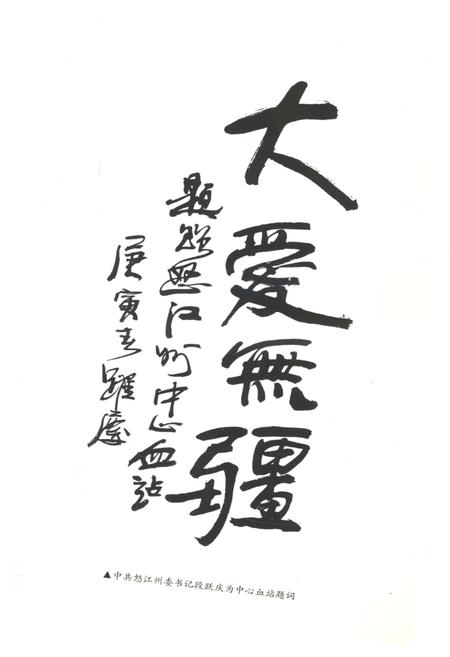 大愛無疆
題贈怒江州中心血站
庚寅春躍慶
▲中共怒江州委书记段跃庆为中心血站题词